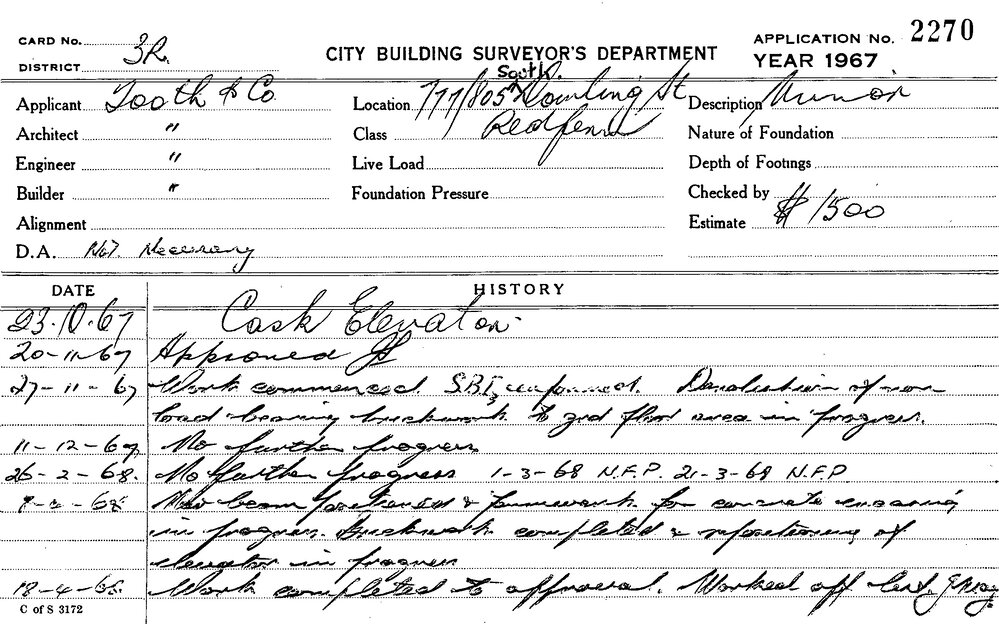 CARD No.
DISTRICT 3R.
CITY BUILDING SURVEYOR'S DEPARTMENT
APPLICATION No. 2270
YEAR 1967
Applicant Tooth & Co
Architect "
Engineer "
Builder "
Alignment
D.A. Not. Necessary
Location 777/805 South Dowling St
Class Redfern
Live Load
Foundation Pressure
Description Minor
Nature of Foundation
Depth of Footings
Checked by
Estimate $ 1500
DATE HISTORY
23.10.67 Cask Elevator
20-11-67 Approved
27-11-67 Work commenced. Demolition of non
load bearing brickwork to 3rd floor area in progress.
11-12-67 No further progress
26-2-68. No further progress 1-3-68 N.F.P. 21-3-68 N.F.P.
New beam positioned & formwork for concrete encasing
in progress. Brickwork completed & repositioning of
elevator in progress
18-4-68. Work completed to approval. Worked off
C of S 3172